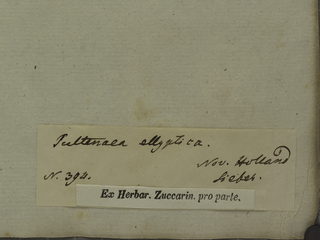 Pultenaea ellyptica.
Nov. Holland
N. 394.
Sieber.
Ex Herbar. Zuccarin. pro parte.